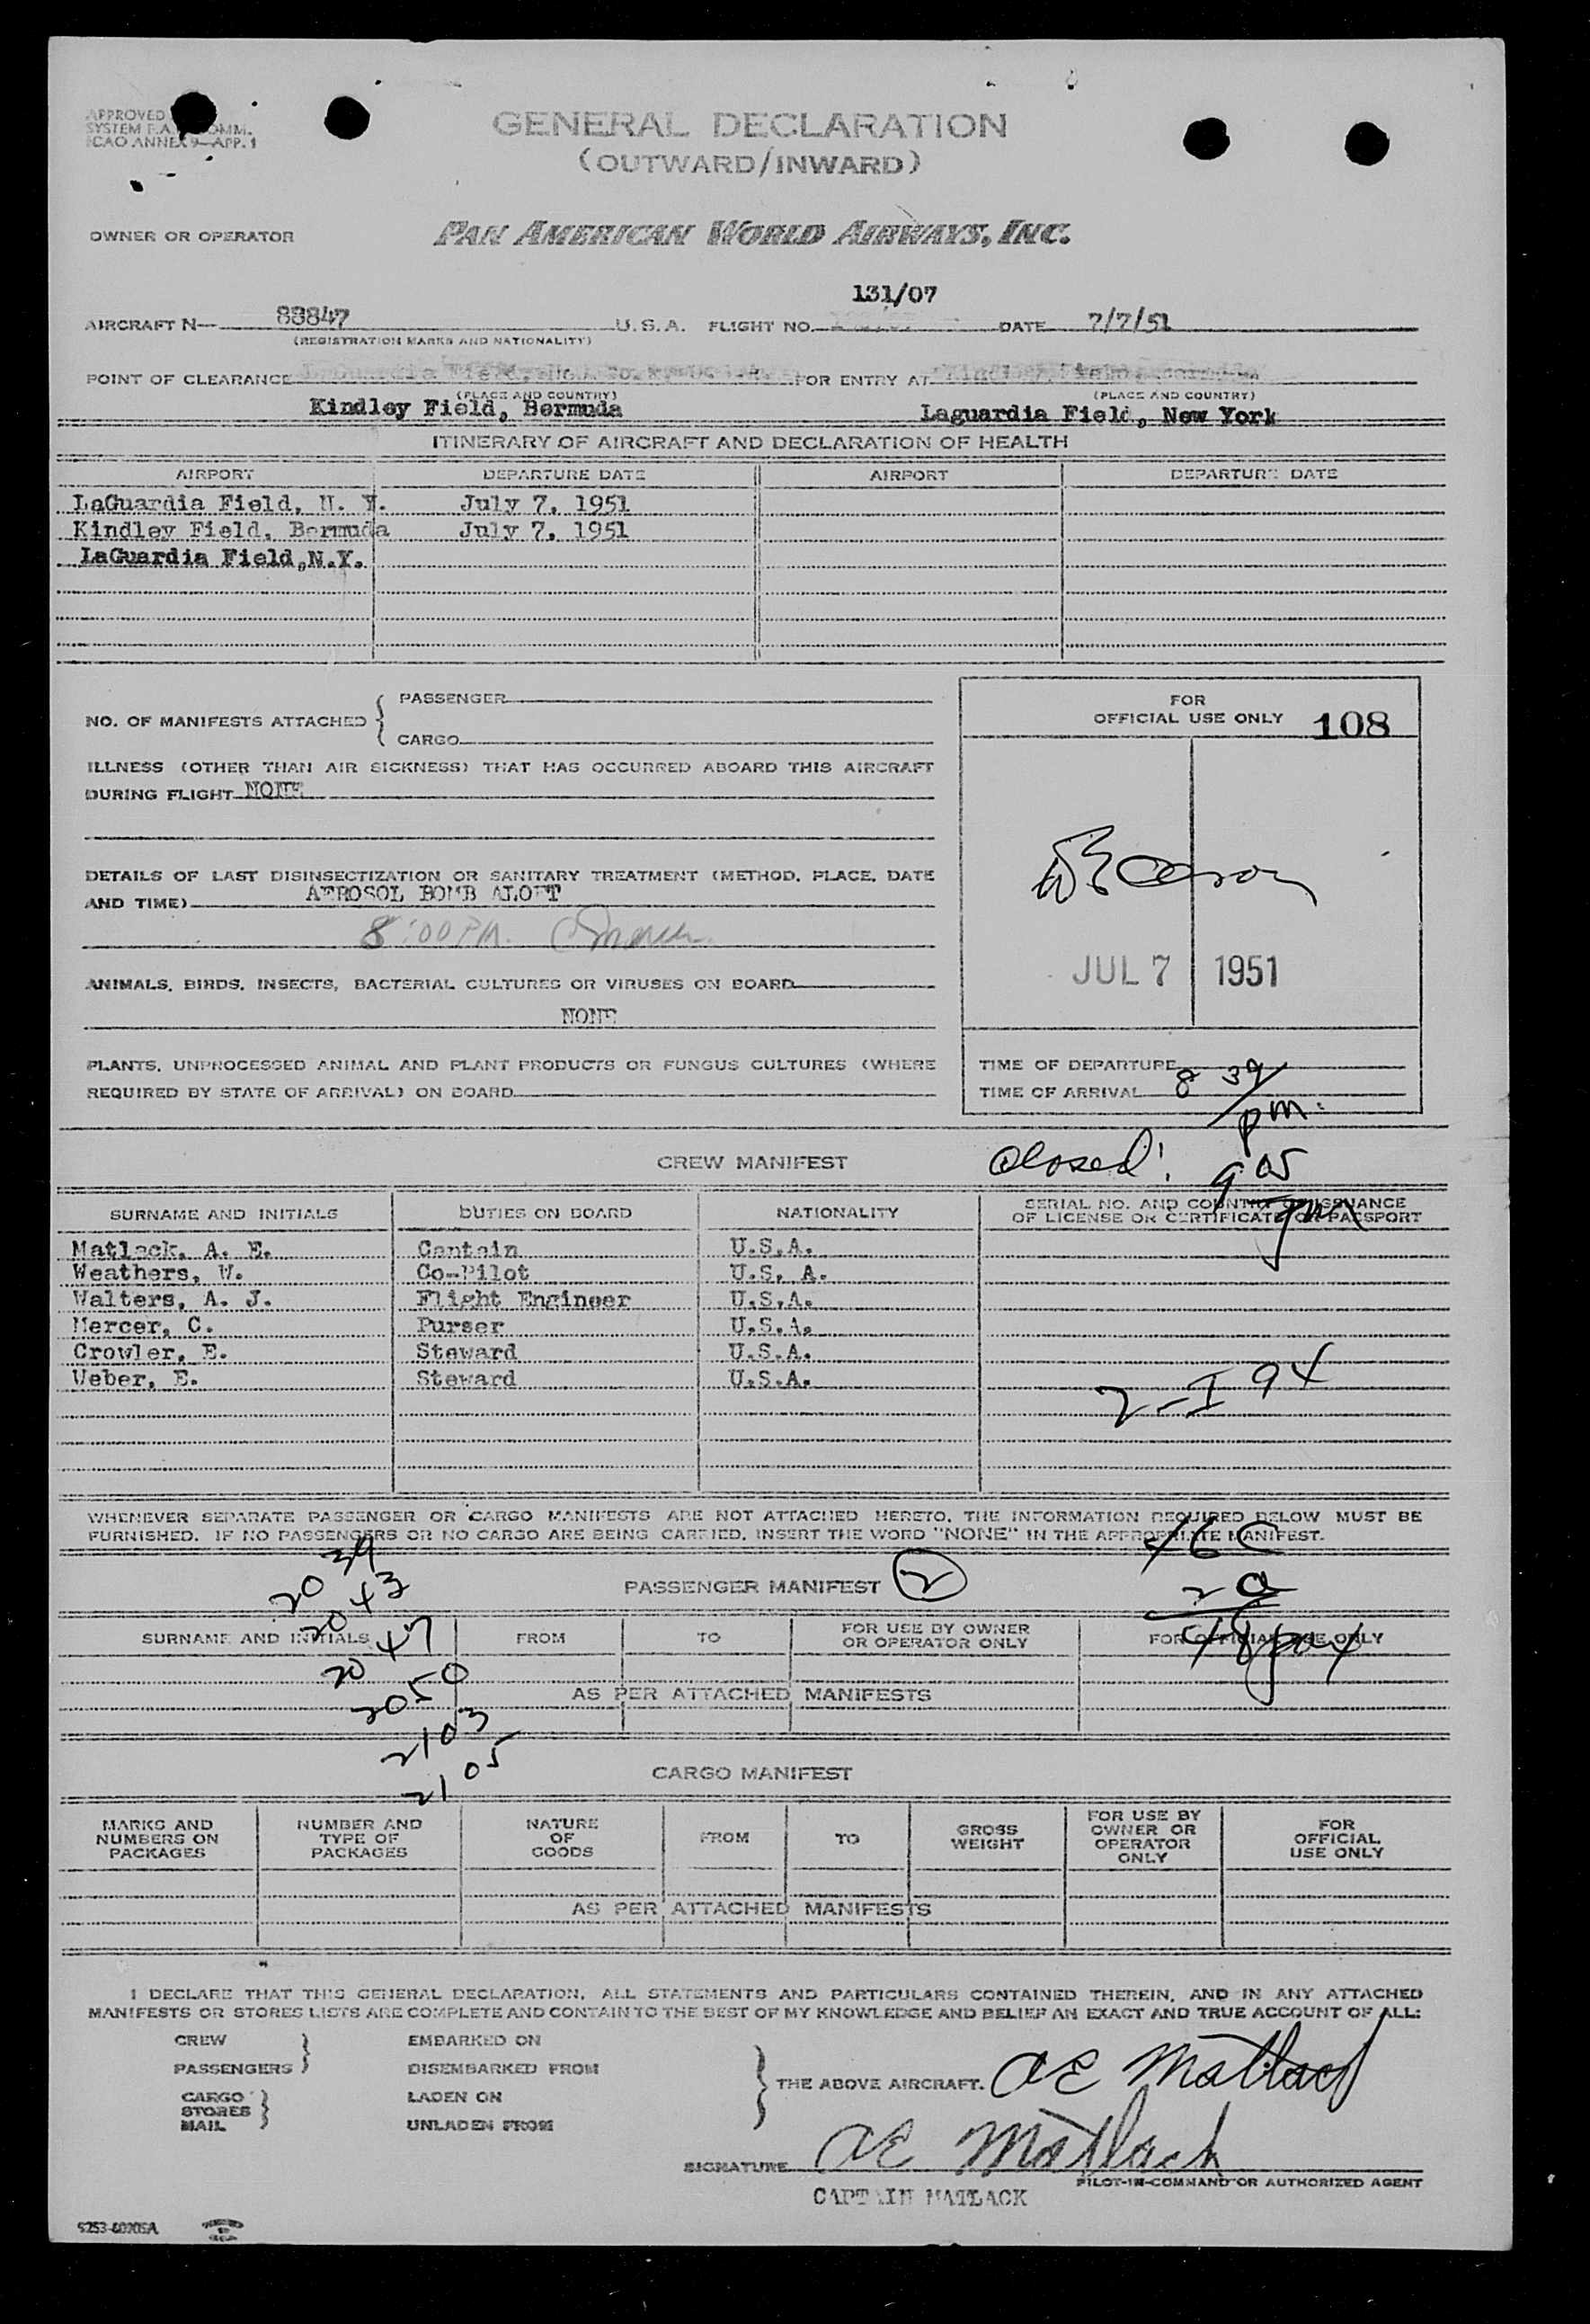 APPROVED
SYSTEM F.A. COMM.
ICAO ANNEX 9—APP. 1
GENERAL DECLARATION
(OUTWARD/INWARD)
OWNER OR OPERATOR
PAN AMERICAN WORLD AIRWAYS, INC.
131/07
AIRCRAFT N— 88847 U.S.A. FLIGHT NO. DATE 7/7/51
(REGISTRATION MARKS AND NATIONALITY)
POINT OF CLEARANCE FOR ENTRY AT
(PLACE AND COUNTRY) (PLACE AND COUNTRY)
Kindley Field, Bermuda Laguardia Field, New York
ITINERARY OF AIRCRAFT AND DECLARATION OF HEALTH
AIRPORT DEPARTURE DATE AIRPORT DEPARTURE DATE
LaGuardia Field, N. Y. July 7, 1951
Kindley Field, Bermuda July 7, 1951
LaGuardia Field,N.Y.
NO. OF MANIFESTS ATTACHED { PASSENGER
CARGO
FOR
OFFICIAL USE ONLY 108
ILLNESS (OTHER THAN AIR SICKNESS) THAT HAS OCCURRED ABOARD THIS AIRCRAFT
DURING FLIGHT NONE
DETAILS OF LAST DISINSECTIZATION OR SANITARY TREATMENT (METHOD, PLACE, DATE
AND TIME) AEROSOL BOMB ALOFT
8:00 PM.
JUL 7 1951
ANIMALS, BIRDS, INSECTS, BACTERIAL CULTURES OR VIRUSES ON BOARD
NONE
PLANTS, UNPROCESSED ANIMAL AND PLANT PRODUCTS OR FUNGUS CULTURES (WHERE
REQUIRED BY STATE OF ARRIVAL) ON BOARD
TIME OF DEPARTURE
TIME OF ARRIVAL 8 39
pm.
Closed: 9 05
pm
CREW MANIFEST
SURNAME AND INITIALS DUTIES ON BOARD NATIONALITY SERIAL NO. AND COUNTRY OF ISSUANCE
OF LICENSE OR CERTIFICATE OR PASSPORT
Matlack, A. E. Captain U.S.A.
Weathers, W. Co-Pilot U.S. A.
Walters, A. J. Flight Engineer U.S.A.
Mercer, C. Purser U.S.A.
Crowler, E. Steward U.S.A.
Weber, E. Steward U.S.A.
2-I 94
WHENEVER SEPARATE PASSENGER OR CARGO MANIFESTS ARE NOT ATTACHED HERETO, THE INFORMATION REQUIRED BELOW MUST BE
FURNISHED. IF NO PASSENGERS OR NO CARGO ARE BEING CARRIED, INSERT THE WORD "NONE" IN THE APPROPRIATE MANIFEST.
46 C
2 a
48 pax
PASSENGER MANIFEST 2
20 39
20 43
20 47
20 50
21 03
21 05
SURNAME AND INITIALS FROM TO FOR USE BY OWNER
OR OPERATOR ONLY FOR OFFICIAL USE ONLY
AS PER ATTACHED MANIFESTS
CARGO MANIFEST
MARKS AND
NUMBERS ON
PACKAGES
NUMBER AND
TYPE OF
PACKAGES
NATURE
OF
GOODS
FROM
TO
GROSS
WEIGHT
FOR USE BY
OWNER OR
OPERATOR
ONLY
FOR
OFFICIAL
USE ONLY
AS PER ATTACHED MANIFESTS
I DECLARE THAT THIS GENERAL DECLARATION, ALL STATEMENTS AND PARTICULARS CONTAINED THEREIN, AND IN ANY ATTACHED
MANIFESTS OR STORES LISTS ARE COMPLETE AND CONTAIN TO THE BEST OF MY KNOWLEDGE AND BELIEF AN EXACT AND TRUE ACCOUNT OF ALL:
CREW EMBARKED ON
PASSENGERS DISEMBARKED FROM
CARGO LADEN ON
STORES
MAIL UNLADEN FROM
THE ABOVE AIRCRAFT. AE Matlack
SIGNATURE AE Matlack
PILOT-IN-COMMAND OR AUTHORIZED AGENT
CAPTAIN MATLACK
9253-60205A